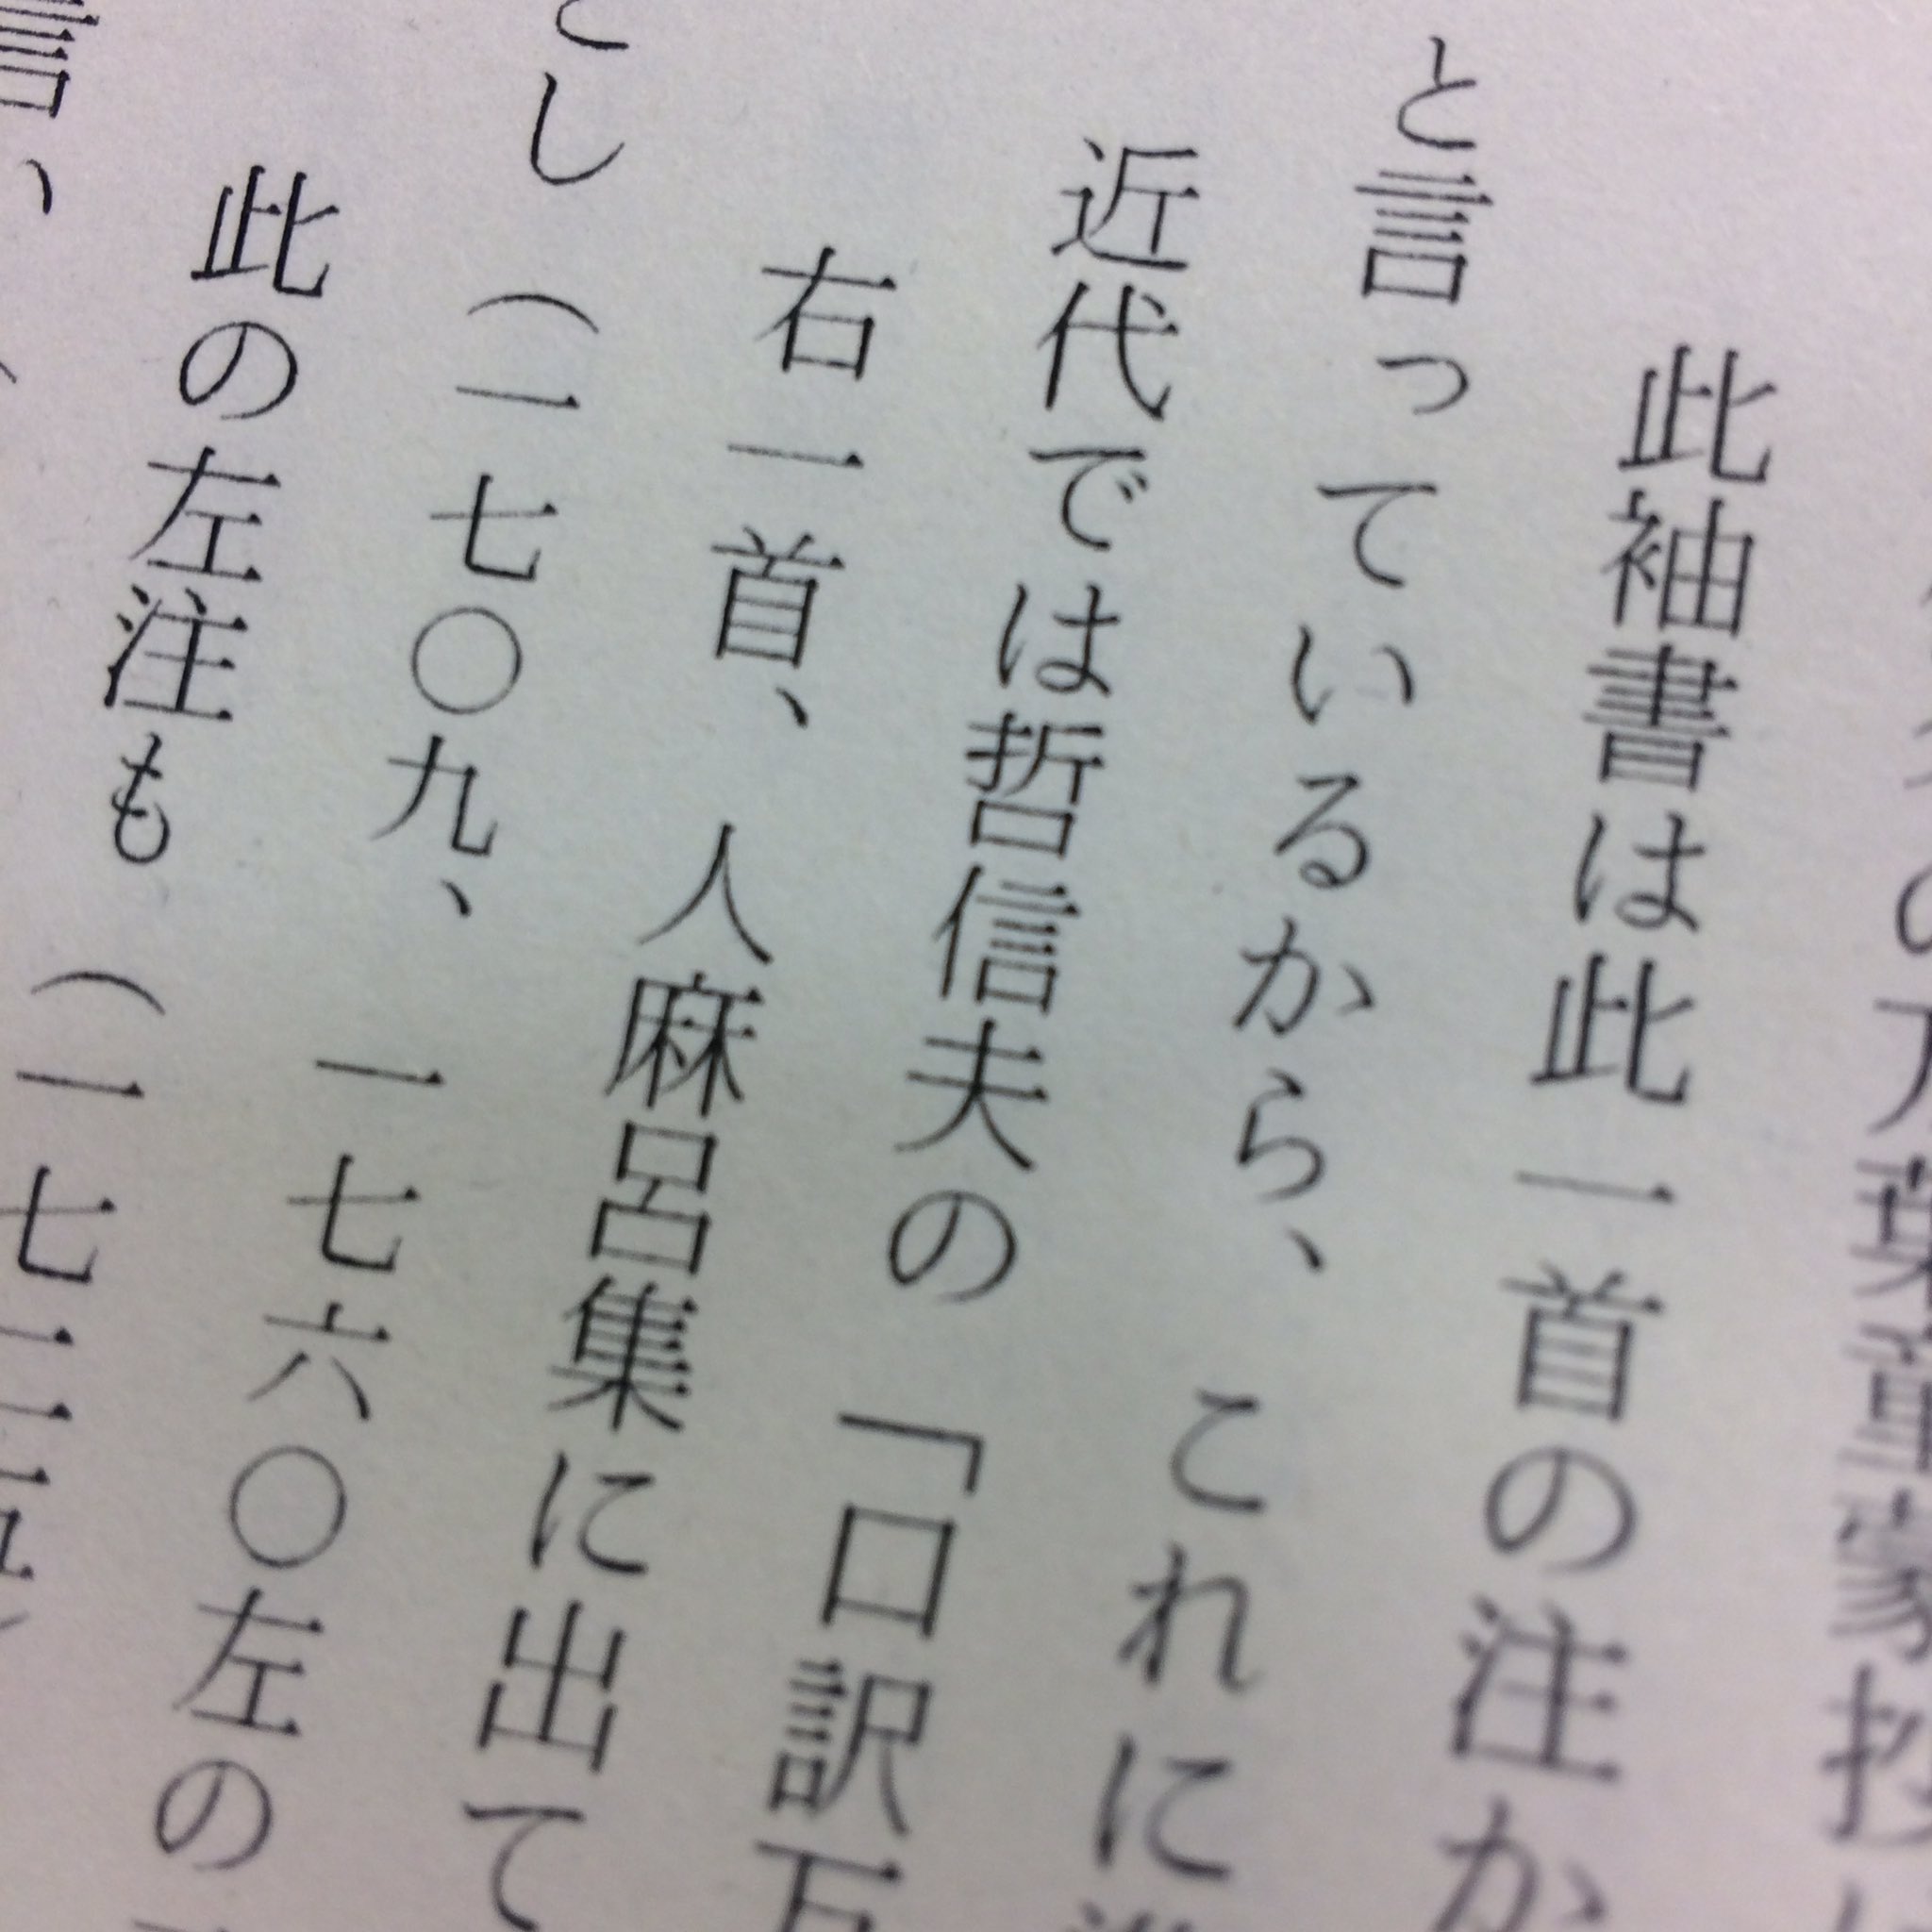 の万葉童蒙抄
此袖書は此一首の注か
と言っているから、これに
近代では哲信夫の「口訳万
右一首、人麻呂集に出て
し（一七〇九、一七六〇左の
此の左注も（一七二五）
言、